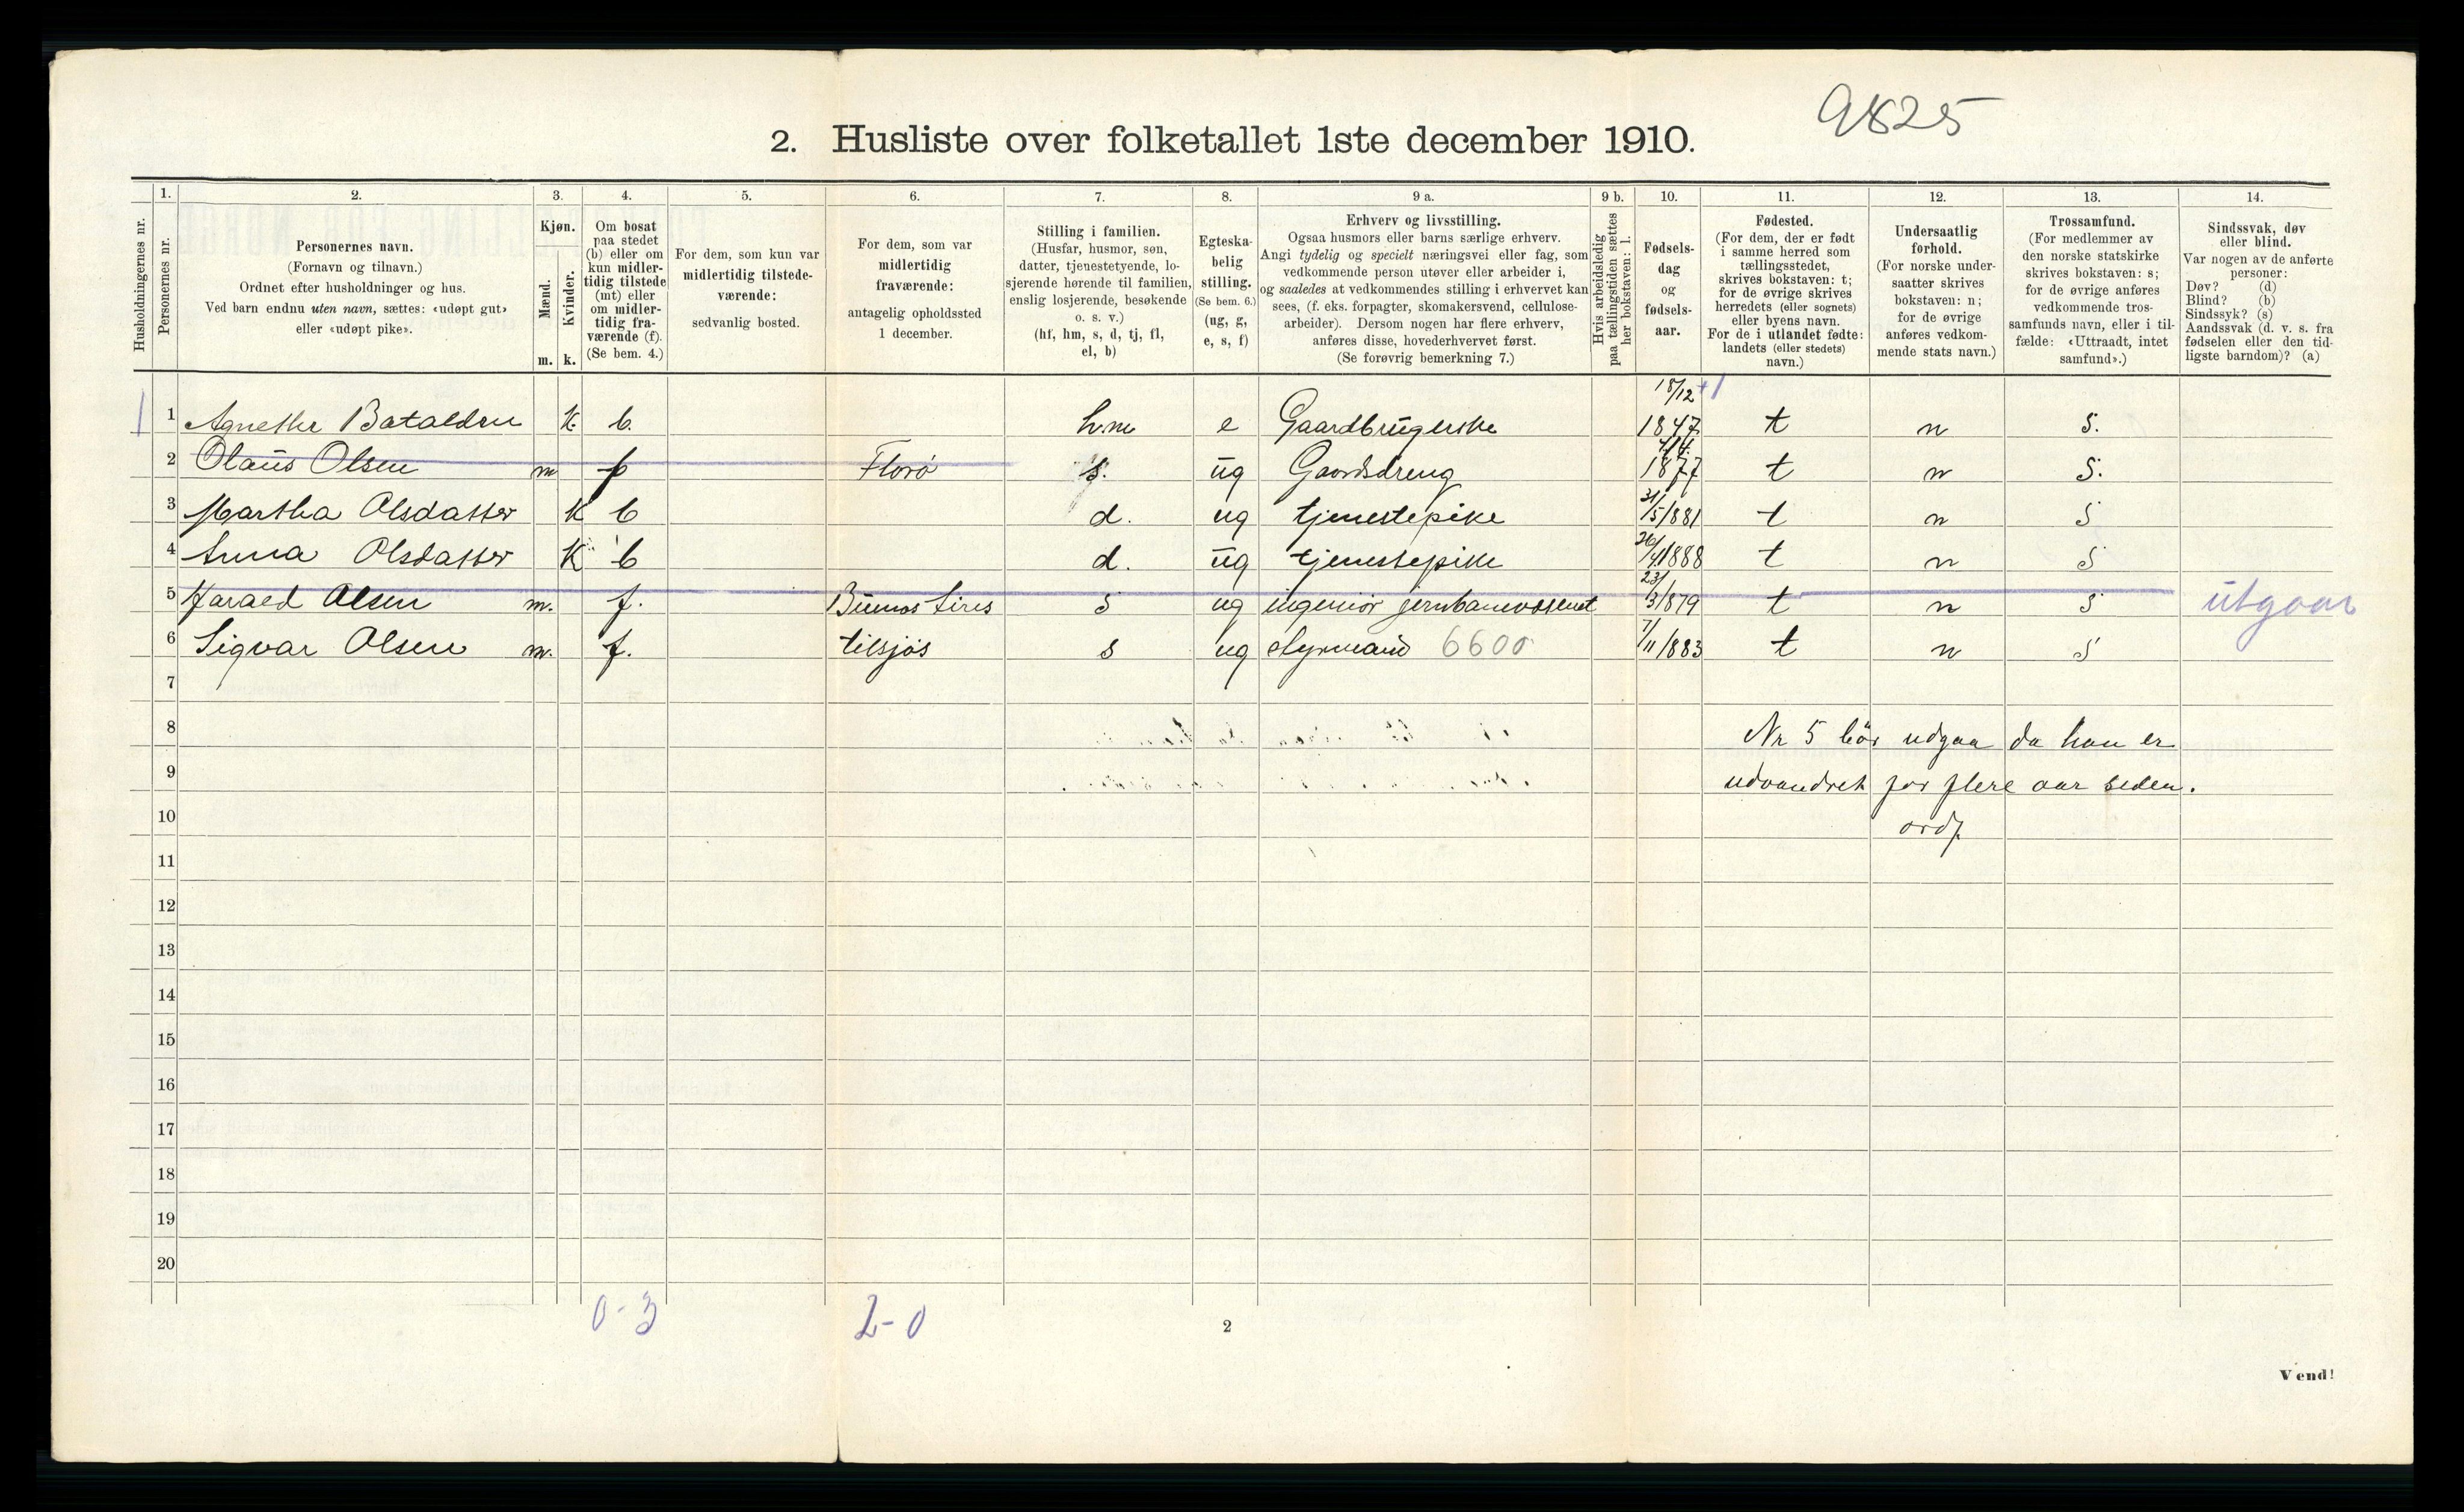 9825
2. Husliste over folketallet 1ste december 1910.
Husholdningernes nr.
1.
Personernes nr.
2.
Personernes navn.
(Fornavn og tilnavn.)
Ordnet efter husholdninger og hus.
Ved barn endnu uten navn, sættes: «udøpt gut»
eller «udøpt pike».
3.
Kjøn.
Mænd.
m.
Kvinder.
k.
4.
Om bosat
paa stedet
(b) eller om
kun midler-
tidig tilstede
(mt) eller
om midler-
tidig fra-
værende (f).
(Se bem. 4.)
5.
For dem, som kun var
midlertidig tilstede-
værende:
sedvanlig bosted.
6.
For dem, som var
midlertidig
fraværende:
antagelig opholdssted
1 december.
7.
Stilling i familien.
(Husfar, husmor, søn,
datter, tjenestetyende, lo-
sjerende hørende til familien,
enslig losjerende, besøkende
o. s. v.)
(hf, hm, s, d, tj, fl,
el, b)
8.
Egteska-
belig
stilling.
(Se bem. 6.)
(ug, g,
e, s, f)
9 a.
Erhverv og livsstilling.
Ogsaa husmors eller barns særlige erhverv.
Angi tydelig og specielt næringsvei eller fag, som
vedkommende person utøver eller arbeider i,
og saaledes at vedkommendes stilling i erhvervet kan
sees, (f. eks. forpagter, skomakersvend, cellulose-
arbeider). Dersom nogen har flere erhverv,
anføres disse, hovederhvervet først.
(Se forøvrig bemerkning 7.)
9 b.
Hvis arbeidsledig
paa tællingstiden sættes
her bokstaven: l.
10.
Fødsels-
dag
og
fødsels-
aar.
11.
Fødested.
(For dem, der er født
i samme herred som
tællingsstedet,
skrives bokstaven: t;
for de øvrige skrives
herredets (eller sognets)
eller byens navn.
For de i utlandet fødte:
landets (eller stedets)
navn.)
12.
Undersaatlig
forhold.
(For norske under-
saatter skrives
bokstaven: n;
for de øvrige
anføres vedkom-
mende stats navn.)
13.
Trossamfund.
(For medlemmer av
den norske statskirke
skrives bokstaven: s;
for de øvrige anføres
vedkommende tros-
samfunds navn, eller i til-
fælde: «Uttraadt, intet
samfund».)
14.
Sindssvak, døv
eller blind.
Var nogen av de anførte
personer:
Døv? (d)
Blind? (b)
Sindssyk? (s)
Aandssvak (d. v. s. fra
fødselen eller den tid-
ligste barndom)? (a)
1 1 Agnethe Batalden K b. hm e Gaardbrugerske 18/12 1847 t n s.
2 Olaus Olsen m f Florö s. ug Gaardsdreng 1877 t n s.
3 Martha Olsdatter K b d. ug tjenestepike 31/5/881 t n s
4 Anna Olsdatter K b d. ug tjenestepike 26/4/1888 t n s
5 Harald Olsen m. f. Buenos Aires s ug ingeniör jernbanevæsenet 23/3/879 t n s utgaar
6 Sigvar Olsen m. f. tilsjös s ug styrmand 6600 7/11/883 t n s
7
8 Nr 5 bör udgaa da han er
9 udvandret for flere aar siden.
10 ordf.
11
12
13
14
15
16
17
18
19
20
0-3 2-0
2
Vend!